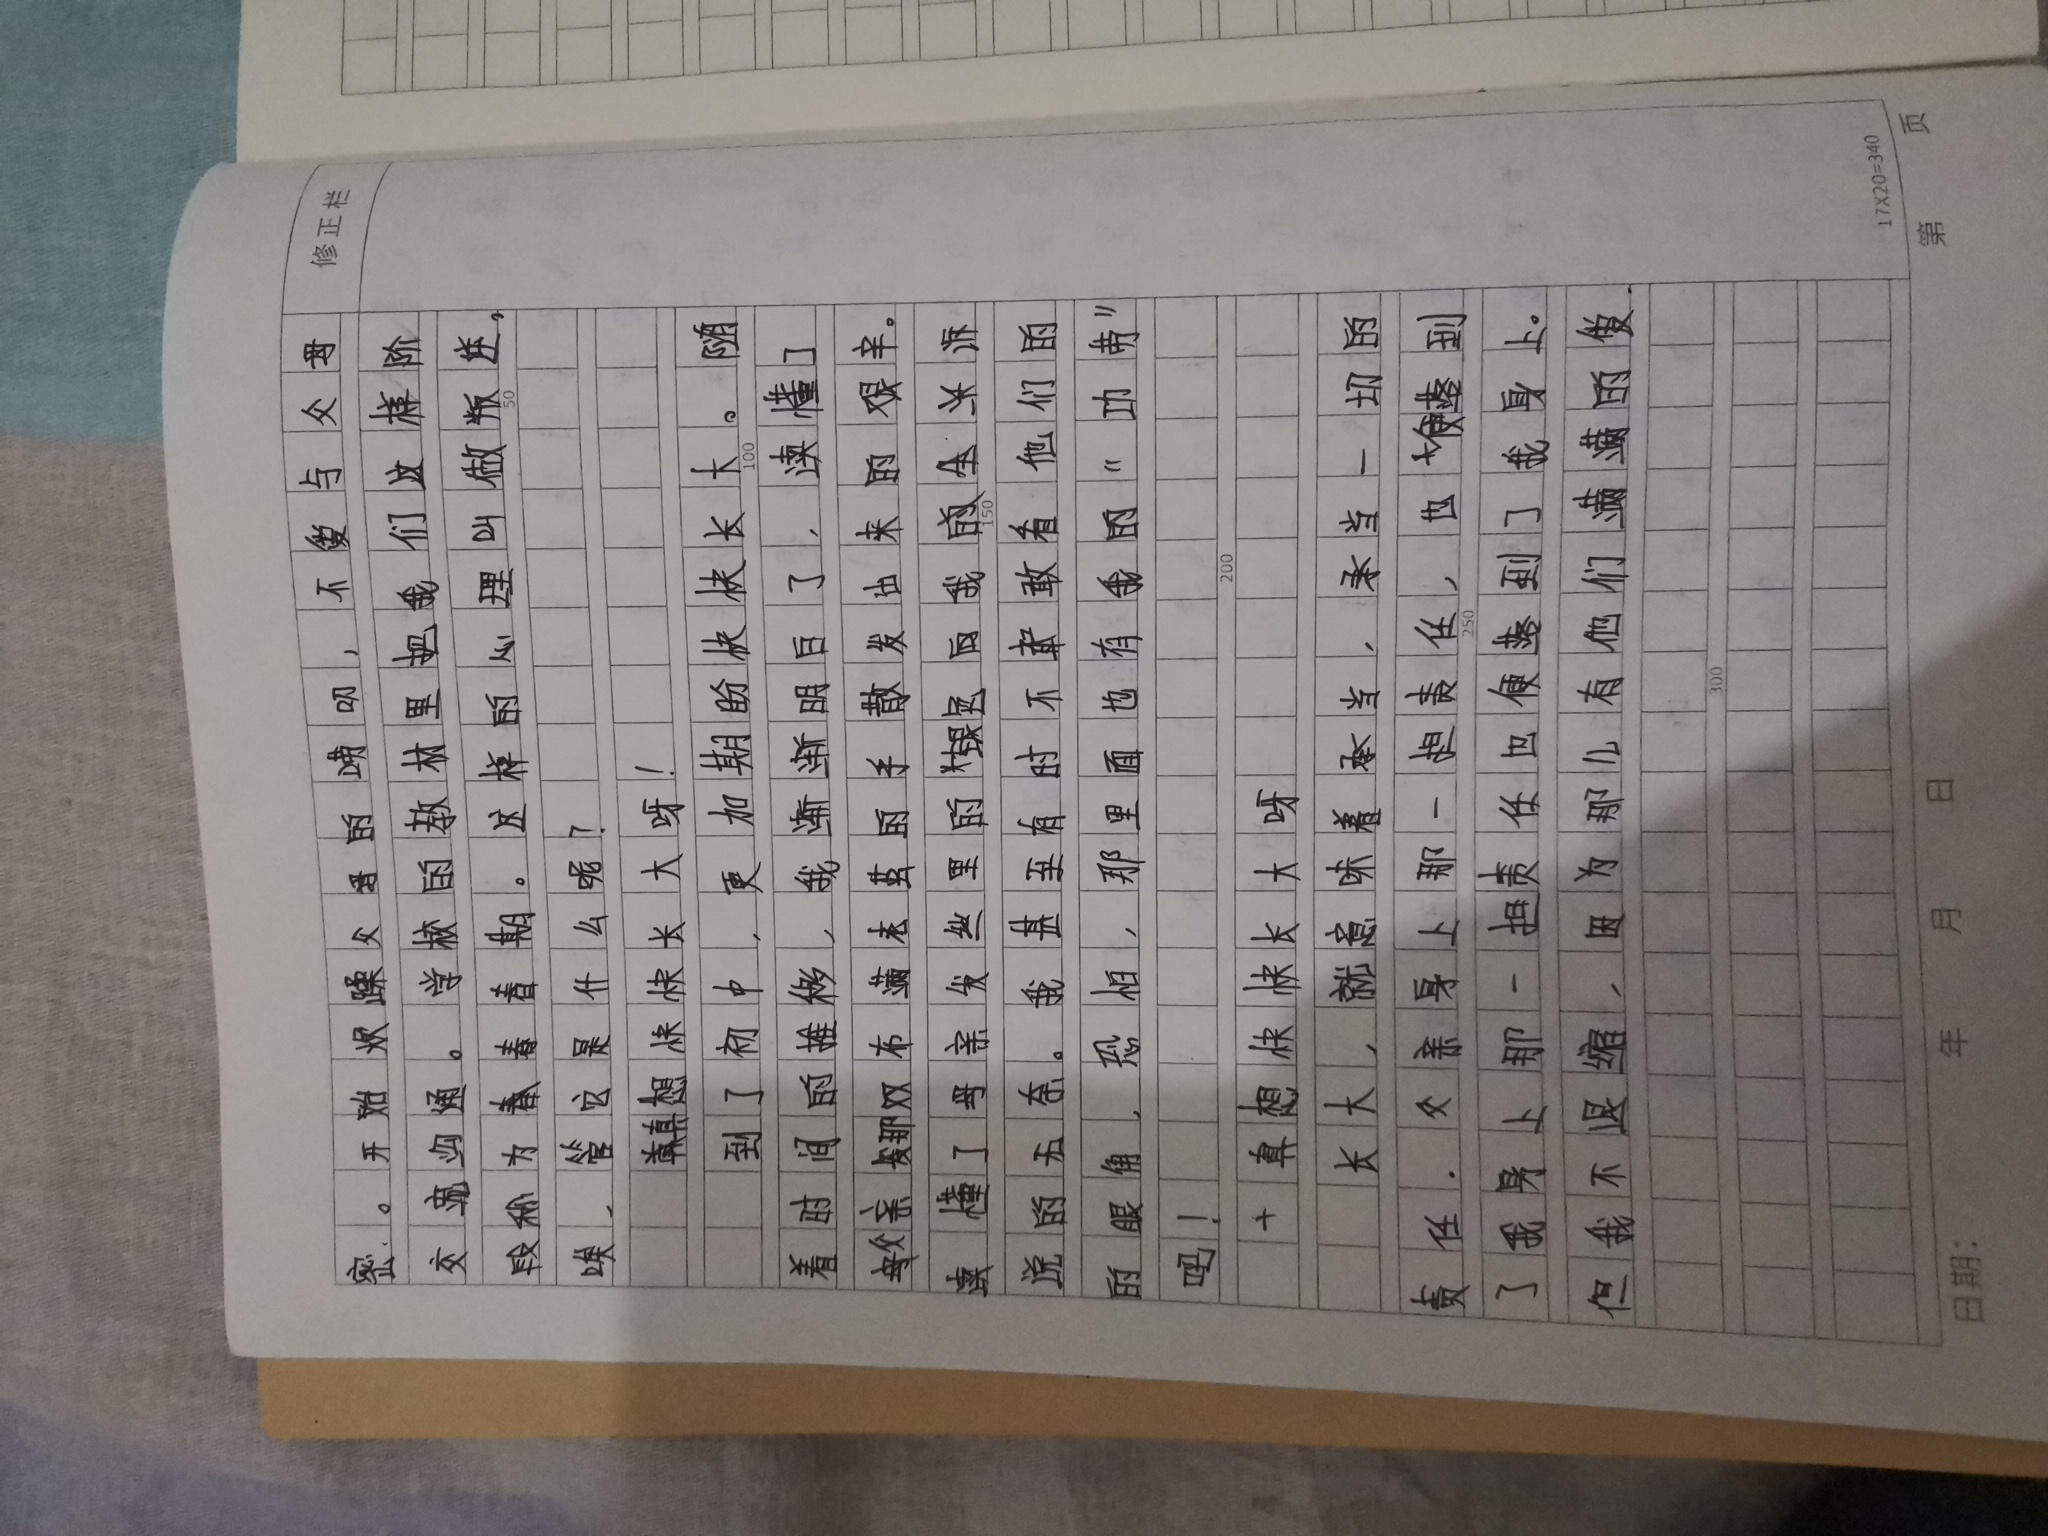 修正栏
密。开始烦躁父母的唠叨，不愛与父母
交流沟通。学校的教材里把我们这样阶
段称为春春春期。这样的心理叫做叛逆，
唉，管它是什么呢？
真想快快长大呀！
到了初中，更加期盼快快长大。随
着时间的推移，我渐渐明白了，读懂了
父亲那双布满老茧的手散发出来的艰辛。
读懂了母亲发丝里的银白和我的人生诉
说的无奈。我甚至有时不敢看他们的
的眼角，恐怕，那里面也有我的“功劳”
吗！
十真想快快长大呀
长大，就意味着承当，承当一切的
责任．父亲身上那一担责任，也便落到
了我身上那一担责任也便落到了我身上。
但我不退缩，因为那儿有他们满满的愛．
50
100
150
200
250
300
17X20=340
日期： 年 月 日 第 页